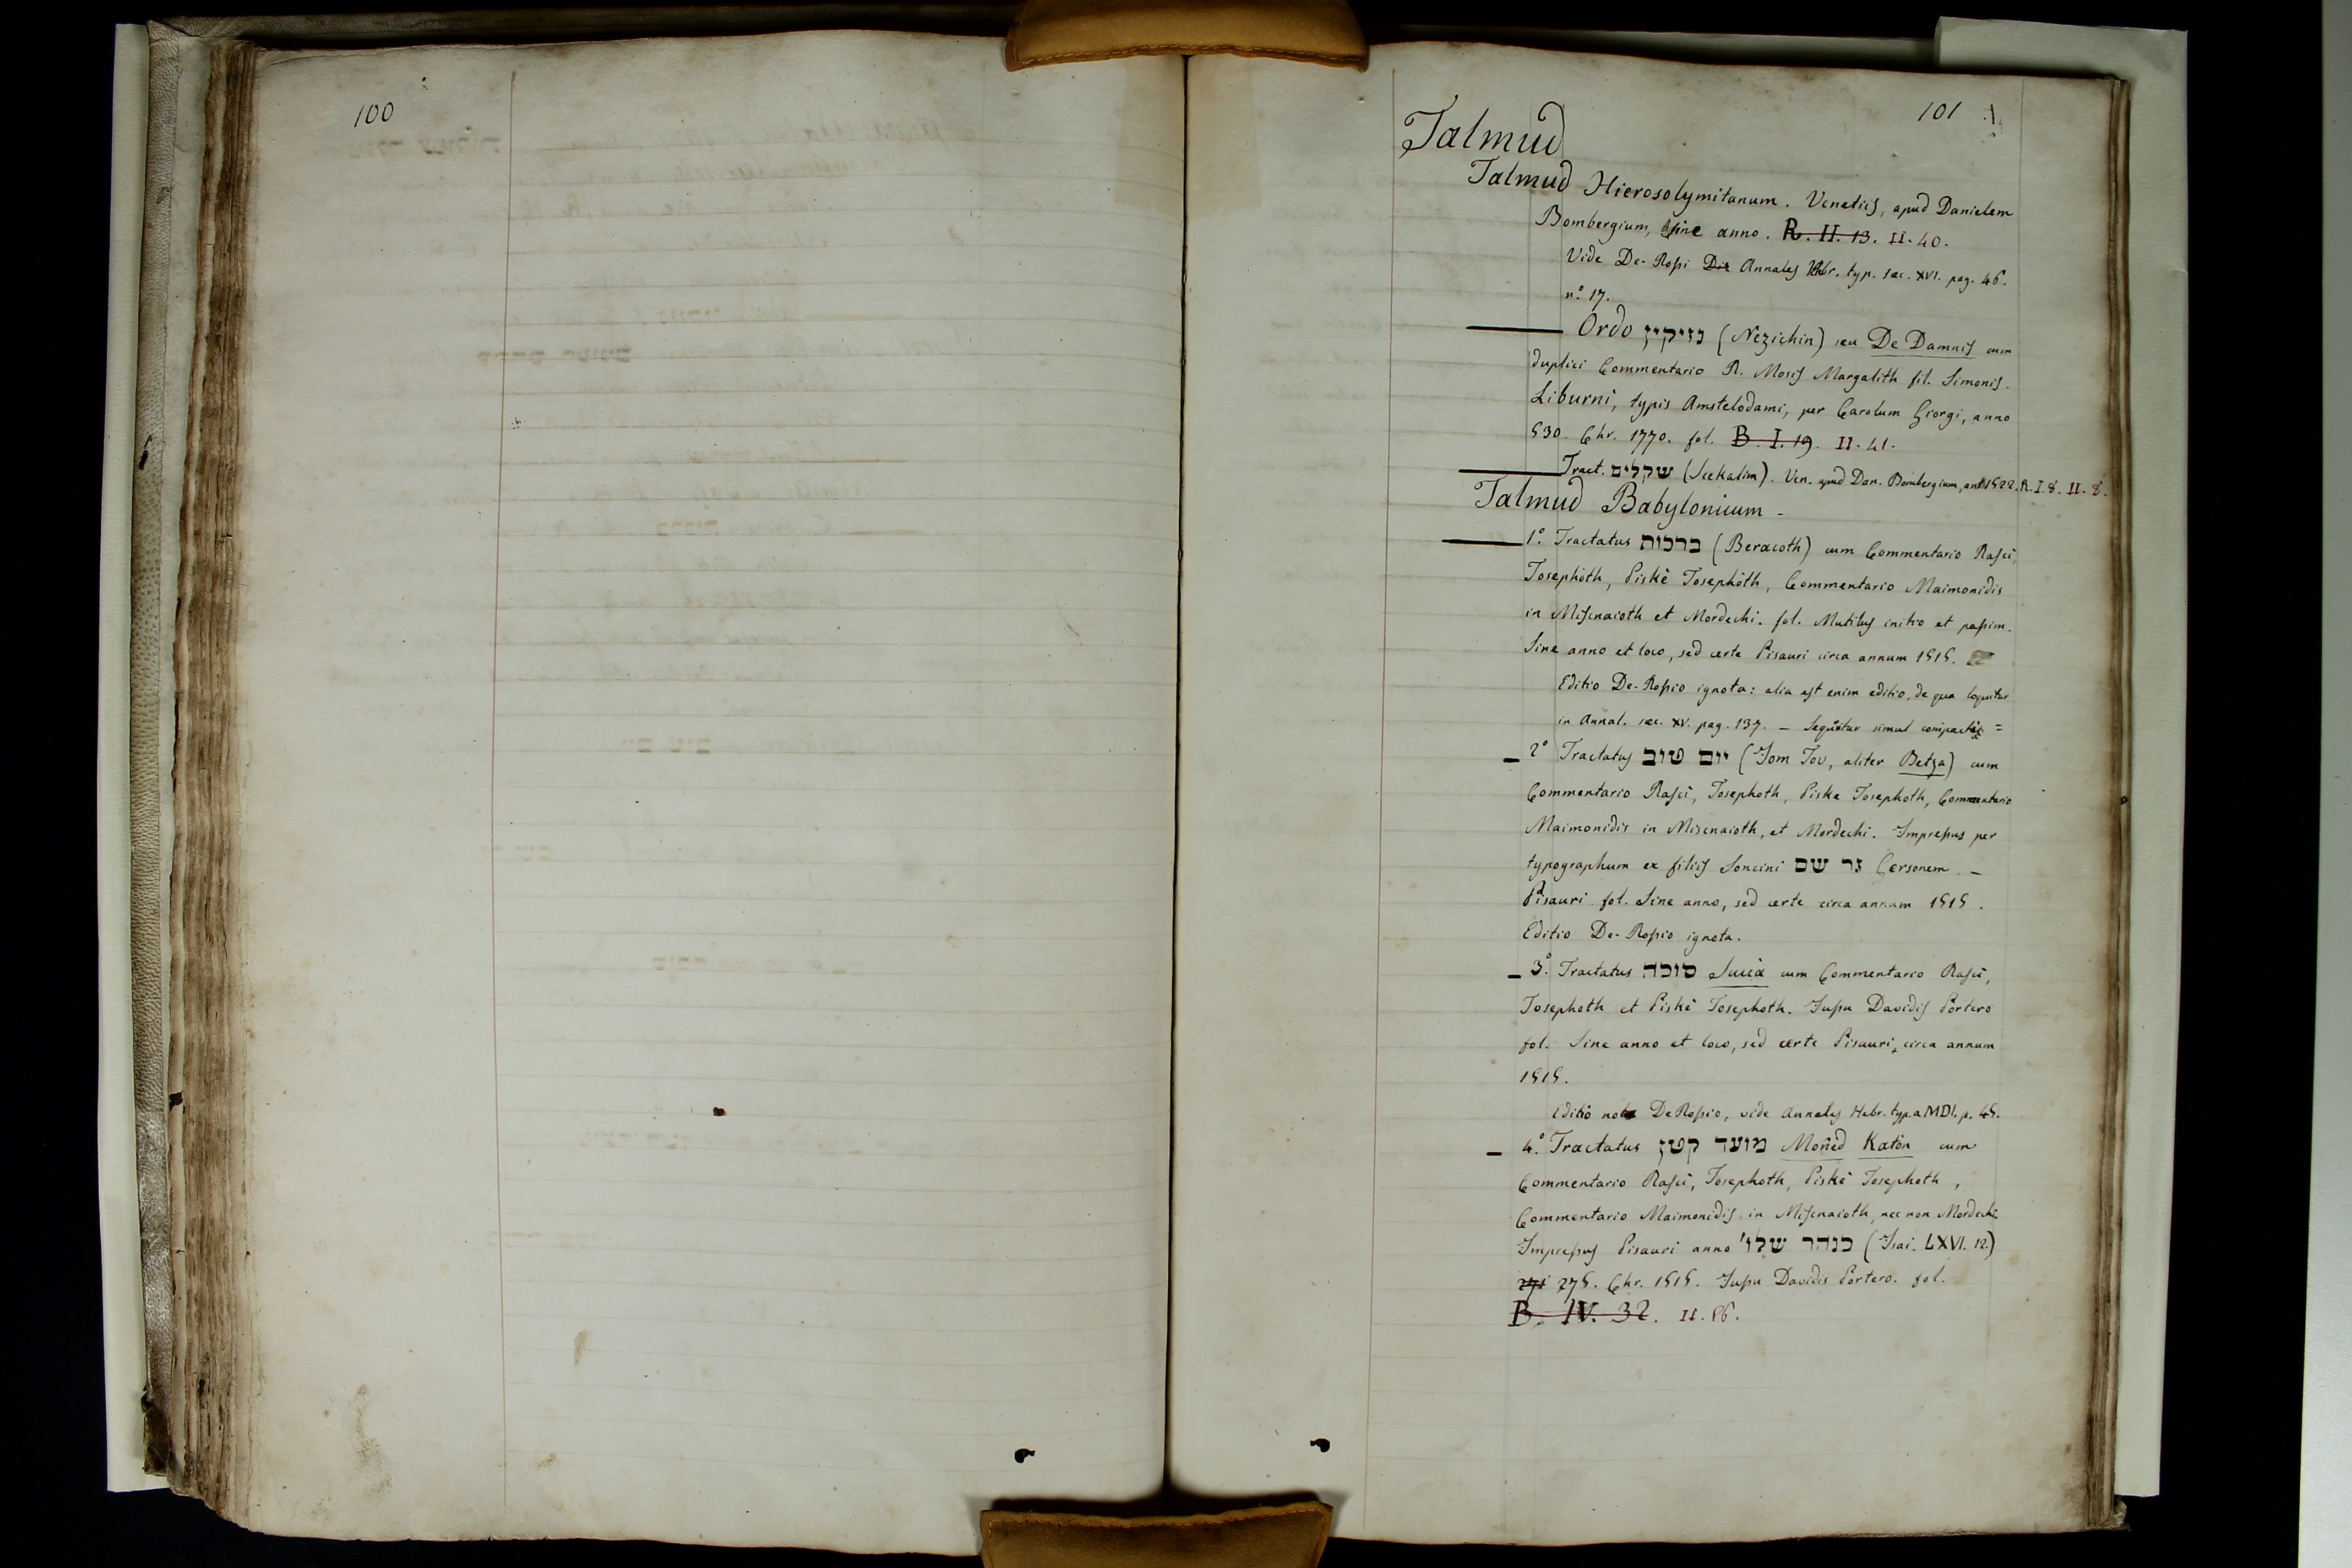 100
101
Talmud
Talmud Hierosolymitanum. Venetiis, apud Danielem
Bombergium, sine anno. R. II. 13. II. 40.
Vide De-Rossi Annales Hebr. typ. sæc. XVI. pag. 46.
n.° 17.
Ordo נזיקין (Nezichin) seu De Damnis cum
duplici Commentario R. Mosis Margalith fil. Simonis.
Liburni, typis Amstelodami, per Carolum Giorgi, anno
530. Chr. 1770. fol. B. I. 19. II. 41.
Tract. שקלים (Scekalim). Ven. apud Dan. Bombergium, an. 1522. R. I. 8. II. 8.
Talmud Babylonicum -
1.° Tractatus ברכות (Beracoth) cum Commentario Rasci,
Tosephòth, Piskè Tosephòth, Commentario Maimonidis
in Miscnaioth et Mordechi. fol. Mutilus initio et passim.
Sine anno et loco, sed certe Pisauri circa annum 1515.
Editio De-Rossio ignota: alia est enim editio, de qua loquitur
in Annal. sæc. XV. pag. 137. — Sequitur simul compactus =
2° Tractatus יום טוב (Jom Tov, aliter Betza) cum
Commentario Rasci, Tosephoth, Piske Tosephoth, Commentario
Maimonidis in Miscnaioth, et Mordechi. Impressus per
typographum ex filiis Soncini גר שם Gersonem. —
Pisauri fol. Sine anno, sed certe circa annum 1515.
Editio De-Rossio ignota.
3.° Tractatus סוכה Succà cum Commentario Rasci,
Tosephoth et Piskè Tosephoth. Jussu Davidis Portero
fol. Sine anno et loco, sed certe Pisauri, circa annum
1515.
Editio nota De Rossio, vide Annales Hebr. typ. a MDI. p. 45.
4.° Tractatus מועד קטן Moñed Katòn cum
Commentario Rasci, Tosephoth, Piskè Tosephoth,
Commentario Maimonidis in Miscnaioth, nec non Mordechi.
Impressus Pisauri anno כנהר שלו' (Isai. LXVI. 12.)
271 275. Chr. 1515. Jussu Davidis Portero. fol.
B. IV. 32. II. 86.